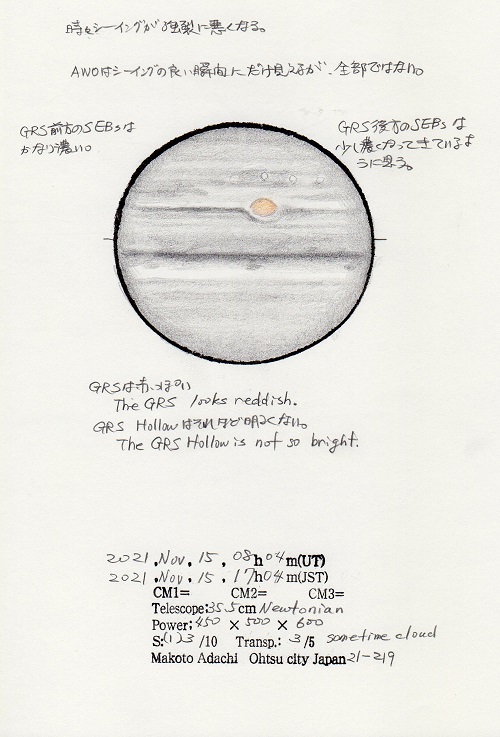 時々シーイングが強烈に悪くなる。
AWOはシーイングの良い瞬間にだけ見えるが、全部ではない。
GRS前方のSEBsは
かなり濃い。
GRS後方のSEBsは
少し濃くなってきているよ
うに思う。
GRSは赤っぽい
The GRS looks reddish.
GRS Hollowはそれほど明るくない。
The GRS Hollow is not so bright.
2021, Nov, 15, 08h04m(UT)
2021, Nov, 15, 17h04m(JST)
CM1= CM2= CM3=
Telescope;35.5cm Newtonian
Power;450 × 500 × 600
S:(1)3/10 Transp.: 3/5 sometime cloud
Makoto Adachi Ohtsu city Japan 21-219